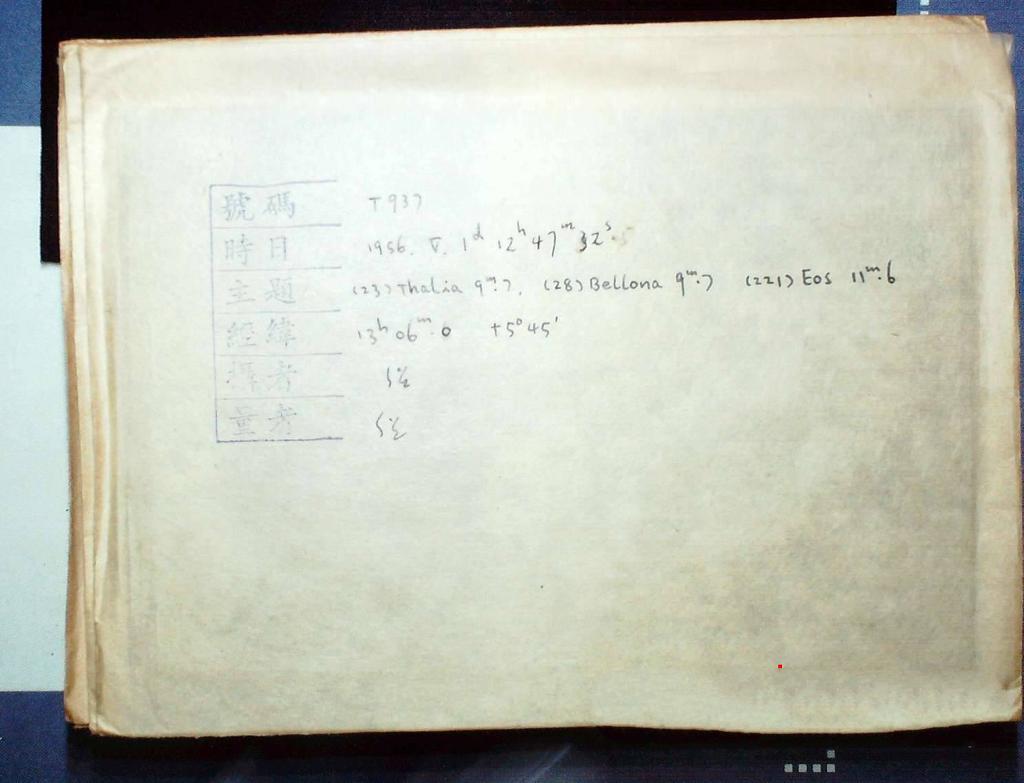 號碼 T937
時日 1956. V. 1ᵈ 12ʰ 47ᵐ 32ˢ.5
主題 (23) Thalia 9ᵐ.7, (28) Bellona 9ᵐ.7 (221) Eos 11ᵐ.6
經緯 13ʰ 06ᵐ.0 +5°45'
攝者
量者